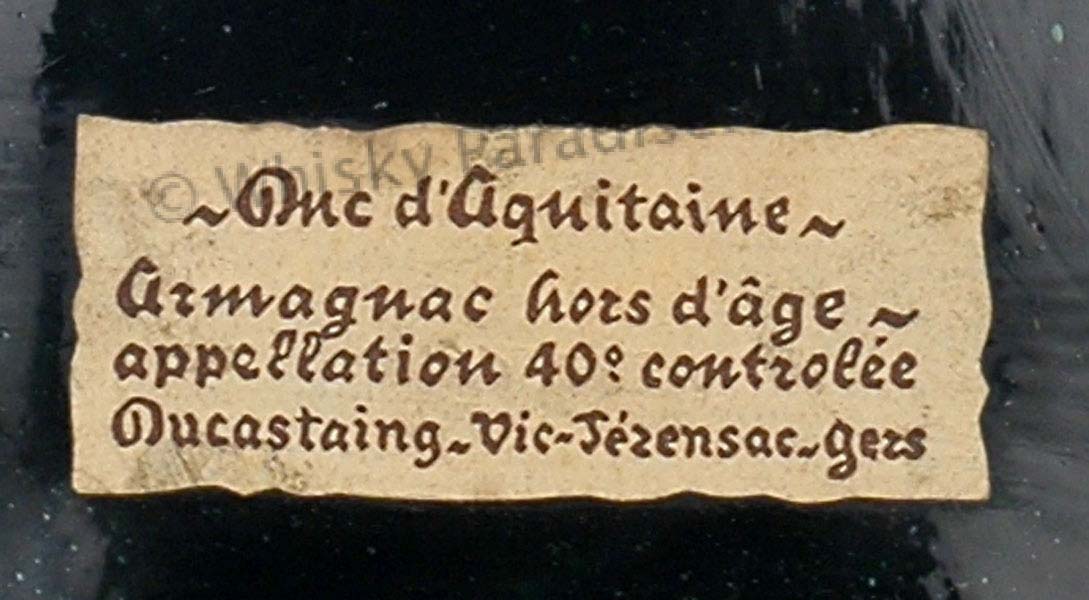 © Whisky Paradise
~ Duc d'Aquitaine ~
Armagnac hors d'âge ~
appellation 40° controlée
Ducastaing ~ Vic-Fézensac ~ Gers